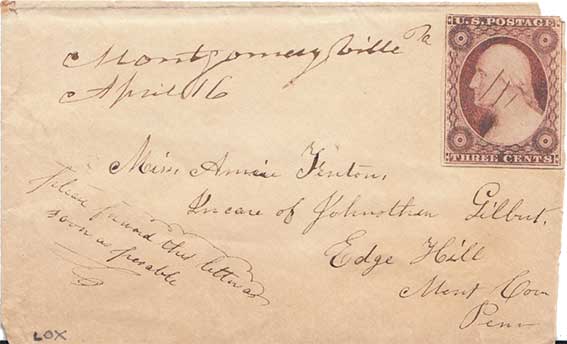 Montgomeryville Pa
April 16
U.S. POSTAGE
THREE CENTS
Miss. Annie Fenton,
In care of Johnothan Gilbert,
Edge Hill
Mont Con
Penn
please forward this letter as
soon as posable
LOX